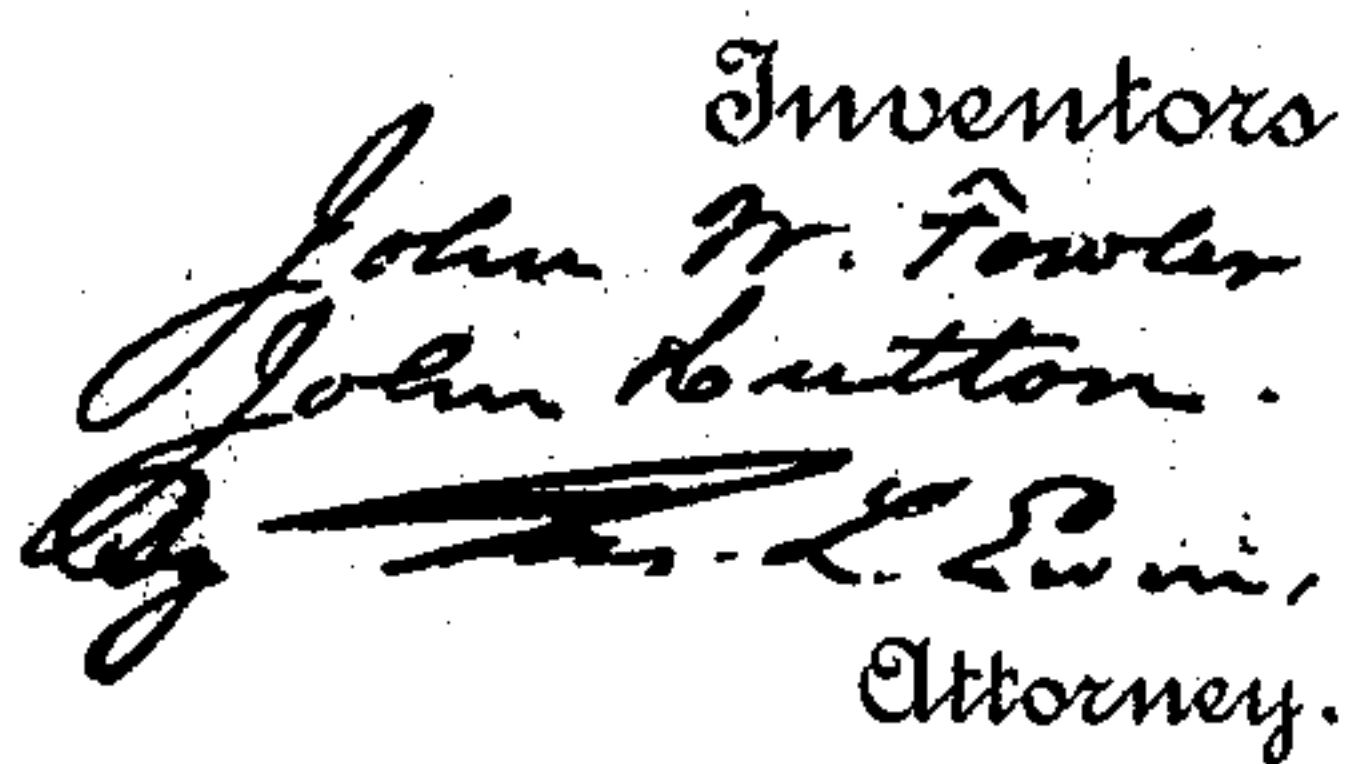 Inventors
John W. Fowler
John Hutton.
By L. Ewin,
Attorney.